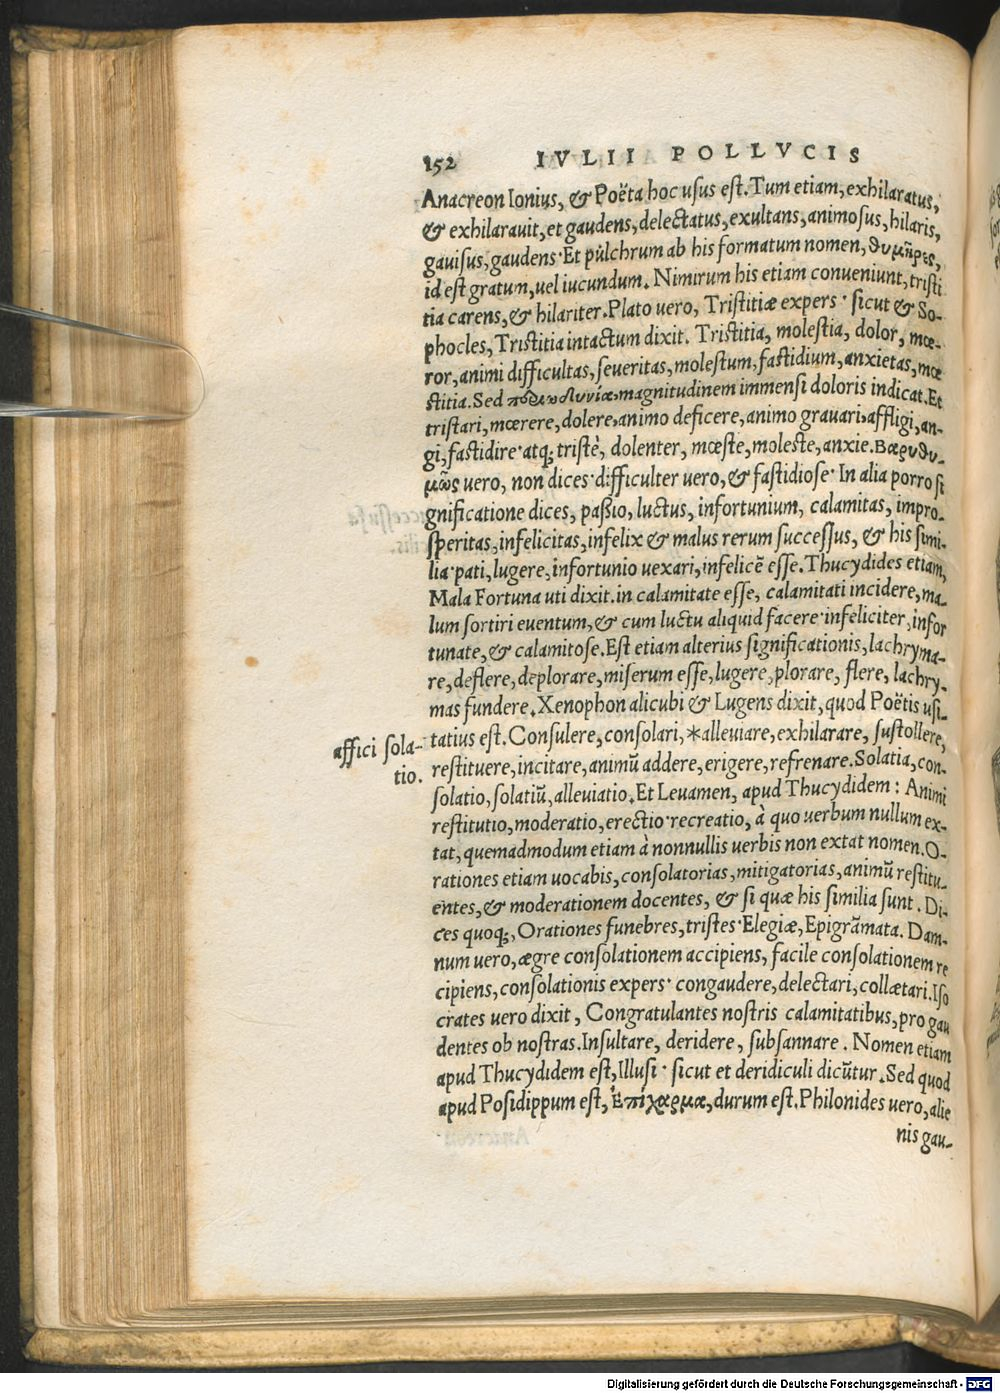 152 IVLII POLLVCIS
Anacreon Ionius, & Poëta hoc usus est. Tum etiam, exhilaratus,
& exhilarauit, et gaudens, delectatus, exultans, animosus, hilaris,
gauisus, gaudens· Et pulchrum ab his formatum nomen, θυμήρες,
id est gratum, uel iucundum. Nimirum his etiam conueniunt, tristi
tia carens, & hilariter. Plato uero, Tristitiæ expers· sicut & So-
phocles, Tristitia intactum dixit. Tristitia, molestia, dolor, mœ-
ror, animi difficultas, seueritas, molestum, fastidium, anxietas, mœ
stitia. Sed magnitudinem immensi doloris indicat. Et
tristari, mœrere, dolere, animo deficere, animo grauari, affligi, an-
gi, fastidire· atq; tristè, dolenter, mœste, moleste, anxie. Βαρυθυ-
μῶς uero, non dices· difficulter uero, & fastidiose· In alia porro si
gnificatione dices, paßio, luctus, infortunium, calamitas, impro-
speritas, infelicitas, infelix & malus rerum successus, & his simi-
lia· pati, lugere, infortunio uexari, infelicē esse. Thucydides etiam,
Mala Fortuna uti dixit. in calamitate esse, calamitati incidere, ma-
lum sortiri euentum, & cum luctu aliquid facere· infeliciter, infor
tunate, & calamitose. Est etiam alterius significationis, lachryma-
re, deflere, deplorare, miserum esse, lugere, plorare, flere, lachry-
mas fundere. Xenophon alicubi & Lugens dixit, quod Poëtis usi-
tatius est. Consulere, consolari, *alleuiare, exhilarare, sustollere,
affici sola-
tio.
restituere, incitare, animū addere, erigere, refrenare. Solatia, con-
solatio, solatiū, alleuiatio. Et Leuamen, apud Thucydidem: Animi
restitutio, moderatio, erectio· recreatio, à quo uerbum nullum ex-
tat, quemadmodum etiam à nonnullis uerbis non extat nomen. O-
rationes etiam uocabis, consolatorias, mitigatorias, animū restitu-
entes, & moderationem docentes, & si quæ his similia sunt. Di-
ces quoq;, Orationes funebres, tristes· Elegiæ, Epigrāmata. Dam-
num uero, ægre consolationem accipiens, facile consolationem re
cipiens, consolationis expers· congaudere, delectari, collætari. Iso
crates uero dixit, Congratulantes nostris calamitatibus, pro gau
dentes ob nostras. Insultare, deridere, subsannare. Nomen etiam
apud Thucydidem est, Illusi· sicut et deridiculi dicūtur. Sed quod
apud Posidippum est, Ἐπίχαρμα, durum est. Philonides uero, alie
nis gau-
Digitalisierung gefördert durch die Deutsche Forschungsgemeinschaft - DFG